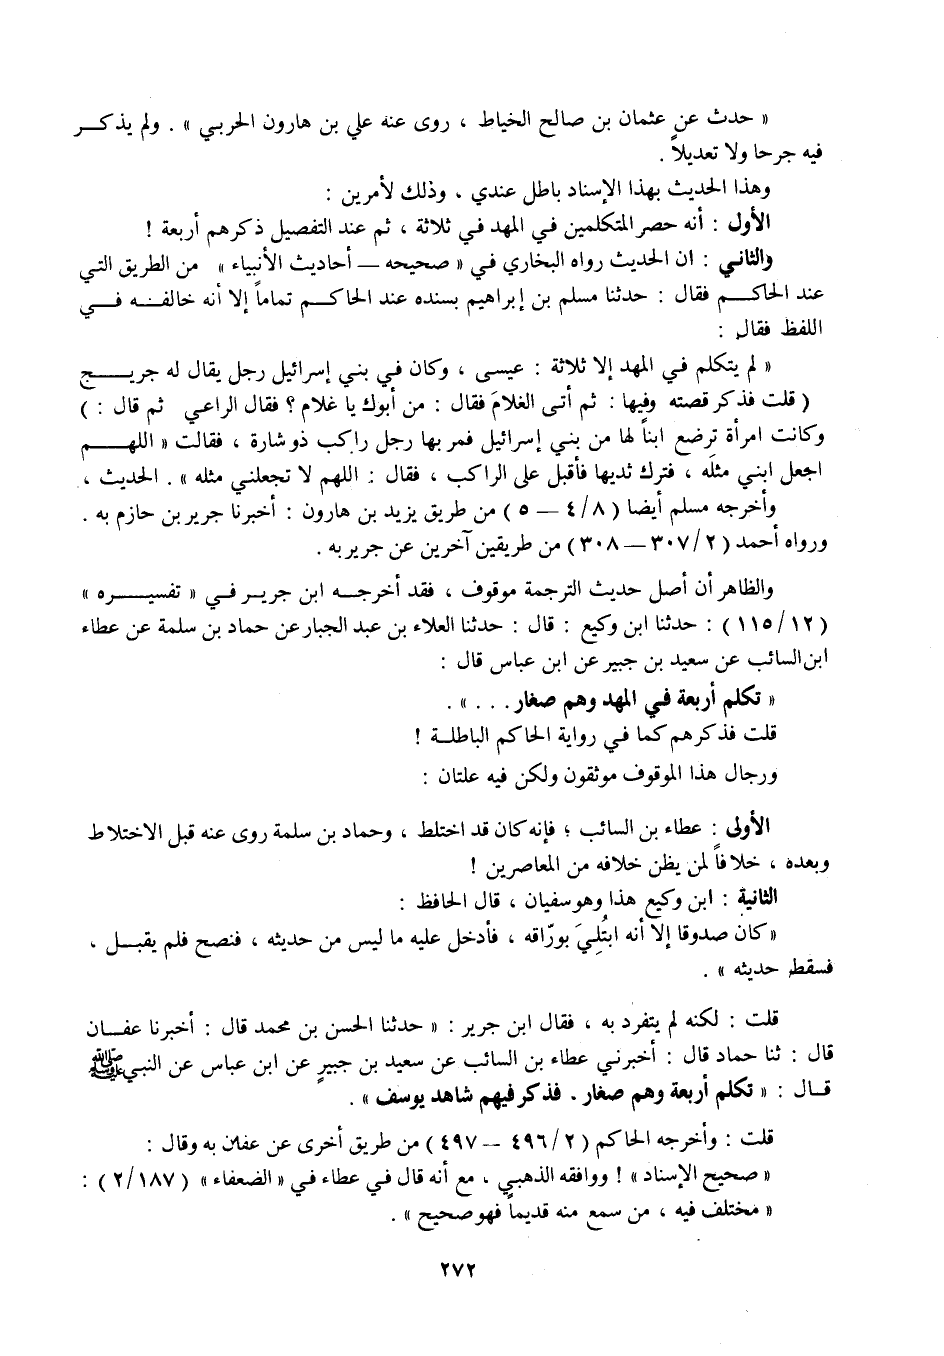 « حدث عن عثمان بن صالح الخياط ، روى عنه علي بن هارون الحربي » . ولم يذكر
فيه جرحا ولا تعديلاً .
وهذا الحديث بهذا الإسناد باطل عندي ، وذلك لأمرين :
الأول : أنه حصر المتكلمين في المهد في ثلاثة ، ثم عند التفصيل ذكرهم أربعة !
والثاني : ان الحديث رواه البخاري في « صحيحه – أحاديث الأنبياء » من الطريق التي
عند الحاكم فقال : حدثنا مسلم بن إبراهيم بسنده عند الحاكم تماماً إلا أنه خالفه في
اللفظ فقال :
« لم يتكلم في المهد إلا ثلاثة : عيسى ، وكان في بني إسرائيل رجل يقال له جريج
( قلت فذكر قصته وفيها : ثم أتى الغلامَ فقال : من أبوك يا غلام ؟ فقال الراعي ثم قال : )
وكانت امرأة ترضع ابناً لها من بني إسرائيل فمر بها رجل راكب ذو شارة ، فقالت « اللهم
اجعل ابني مثلَه ، فترك ثديها فأقبل على الراكب ، فقال : اللهم لا تجعلني مثله » . الحديث ،
وأخرجه مسلم أيضا ( ٨/ ٤ – ٥ ) من طريق يزيد بن هارون : أخبرنا جرير بن حازم به .
ورواه أحمد ( ٢/ ٣٠٧ – ٣٠٨ ) من طريقين آخرين عن جرير به .
والظاهر أن أصل حديث الترجمة موقوف ، فقد أخرجه ابن جرير في « تفسيره »
( ١٢/ ١١٥ ) : حدثنا ابن وكيع : قال : حدثنا العلاء بن عبد الجبار عن حماد بن سلمة عن عطاء
ابن السائب عن سعيد بن جبير عن ابن عباس قال :
« تكلم أربعة في المهد وهم صغار . . . » .
قلت فذكرهم كما في رواية الحاكم الباطلة !
ورجال هذا الموقوف موثقون ولكن فيه علتان :
الأولى : عطاء بن السائب ؛ فإنه كان قد اختلط ، وحماد بن سلمة روى عنه قبل الاختلاط
وبعده ، خلافاً لمن يظن خلافه من المعاصرين !
الثانية : ابن وكيع هذا وهو سفيان ، قال الحافظ :
« كان صدوقا إلا أنه ابتُلِيَ بورّاقه ، فأدخل عليه ما ليس من حديثه ، فنصح فلم يقبل ،
فسقط حديثه » .
قلت : لكنه لم يتفرد به ، فقال ابن جرير : « حدثنا الحسن بن محمد قال : أخبرنا عفان
قال : ثنا حماد قال : أخبرني عطاء بن السائب عن سعيد بن جبيرٍ عن ابن عباس عن النبي ﷺ
قال : « تكلم أربعة وهم صغار . فذكر فيهم شاهد يوسف » .
قلت : وأخرجه الحاكم ( ٢/ ٤٩٦ – ٤٩٧ ) من طريق أخرى عن عفان به وقال :
« صحيح الإسناد » ! ووافقه الذهبي ، مع أنه قال في عطاء في « الضعفاء » ( ١٨٧/ ٢ ) :
« مختلف فيه ، من سمع منه قديماً فهو صحيح » .
٢٧٢